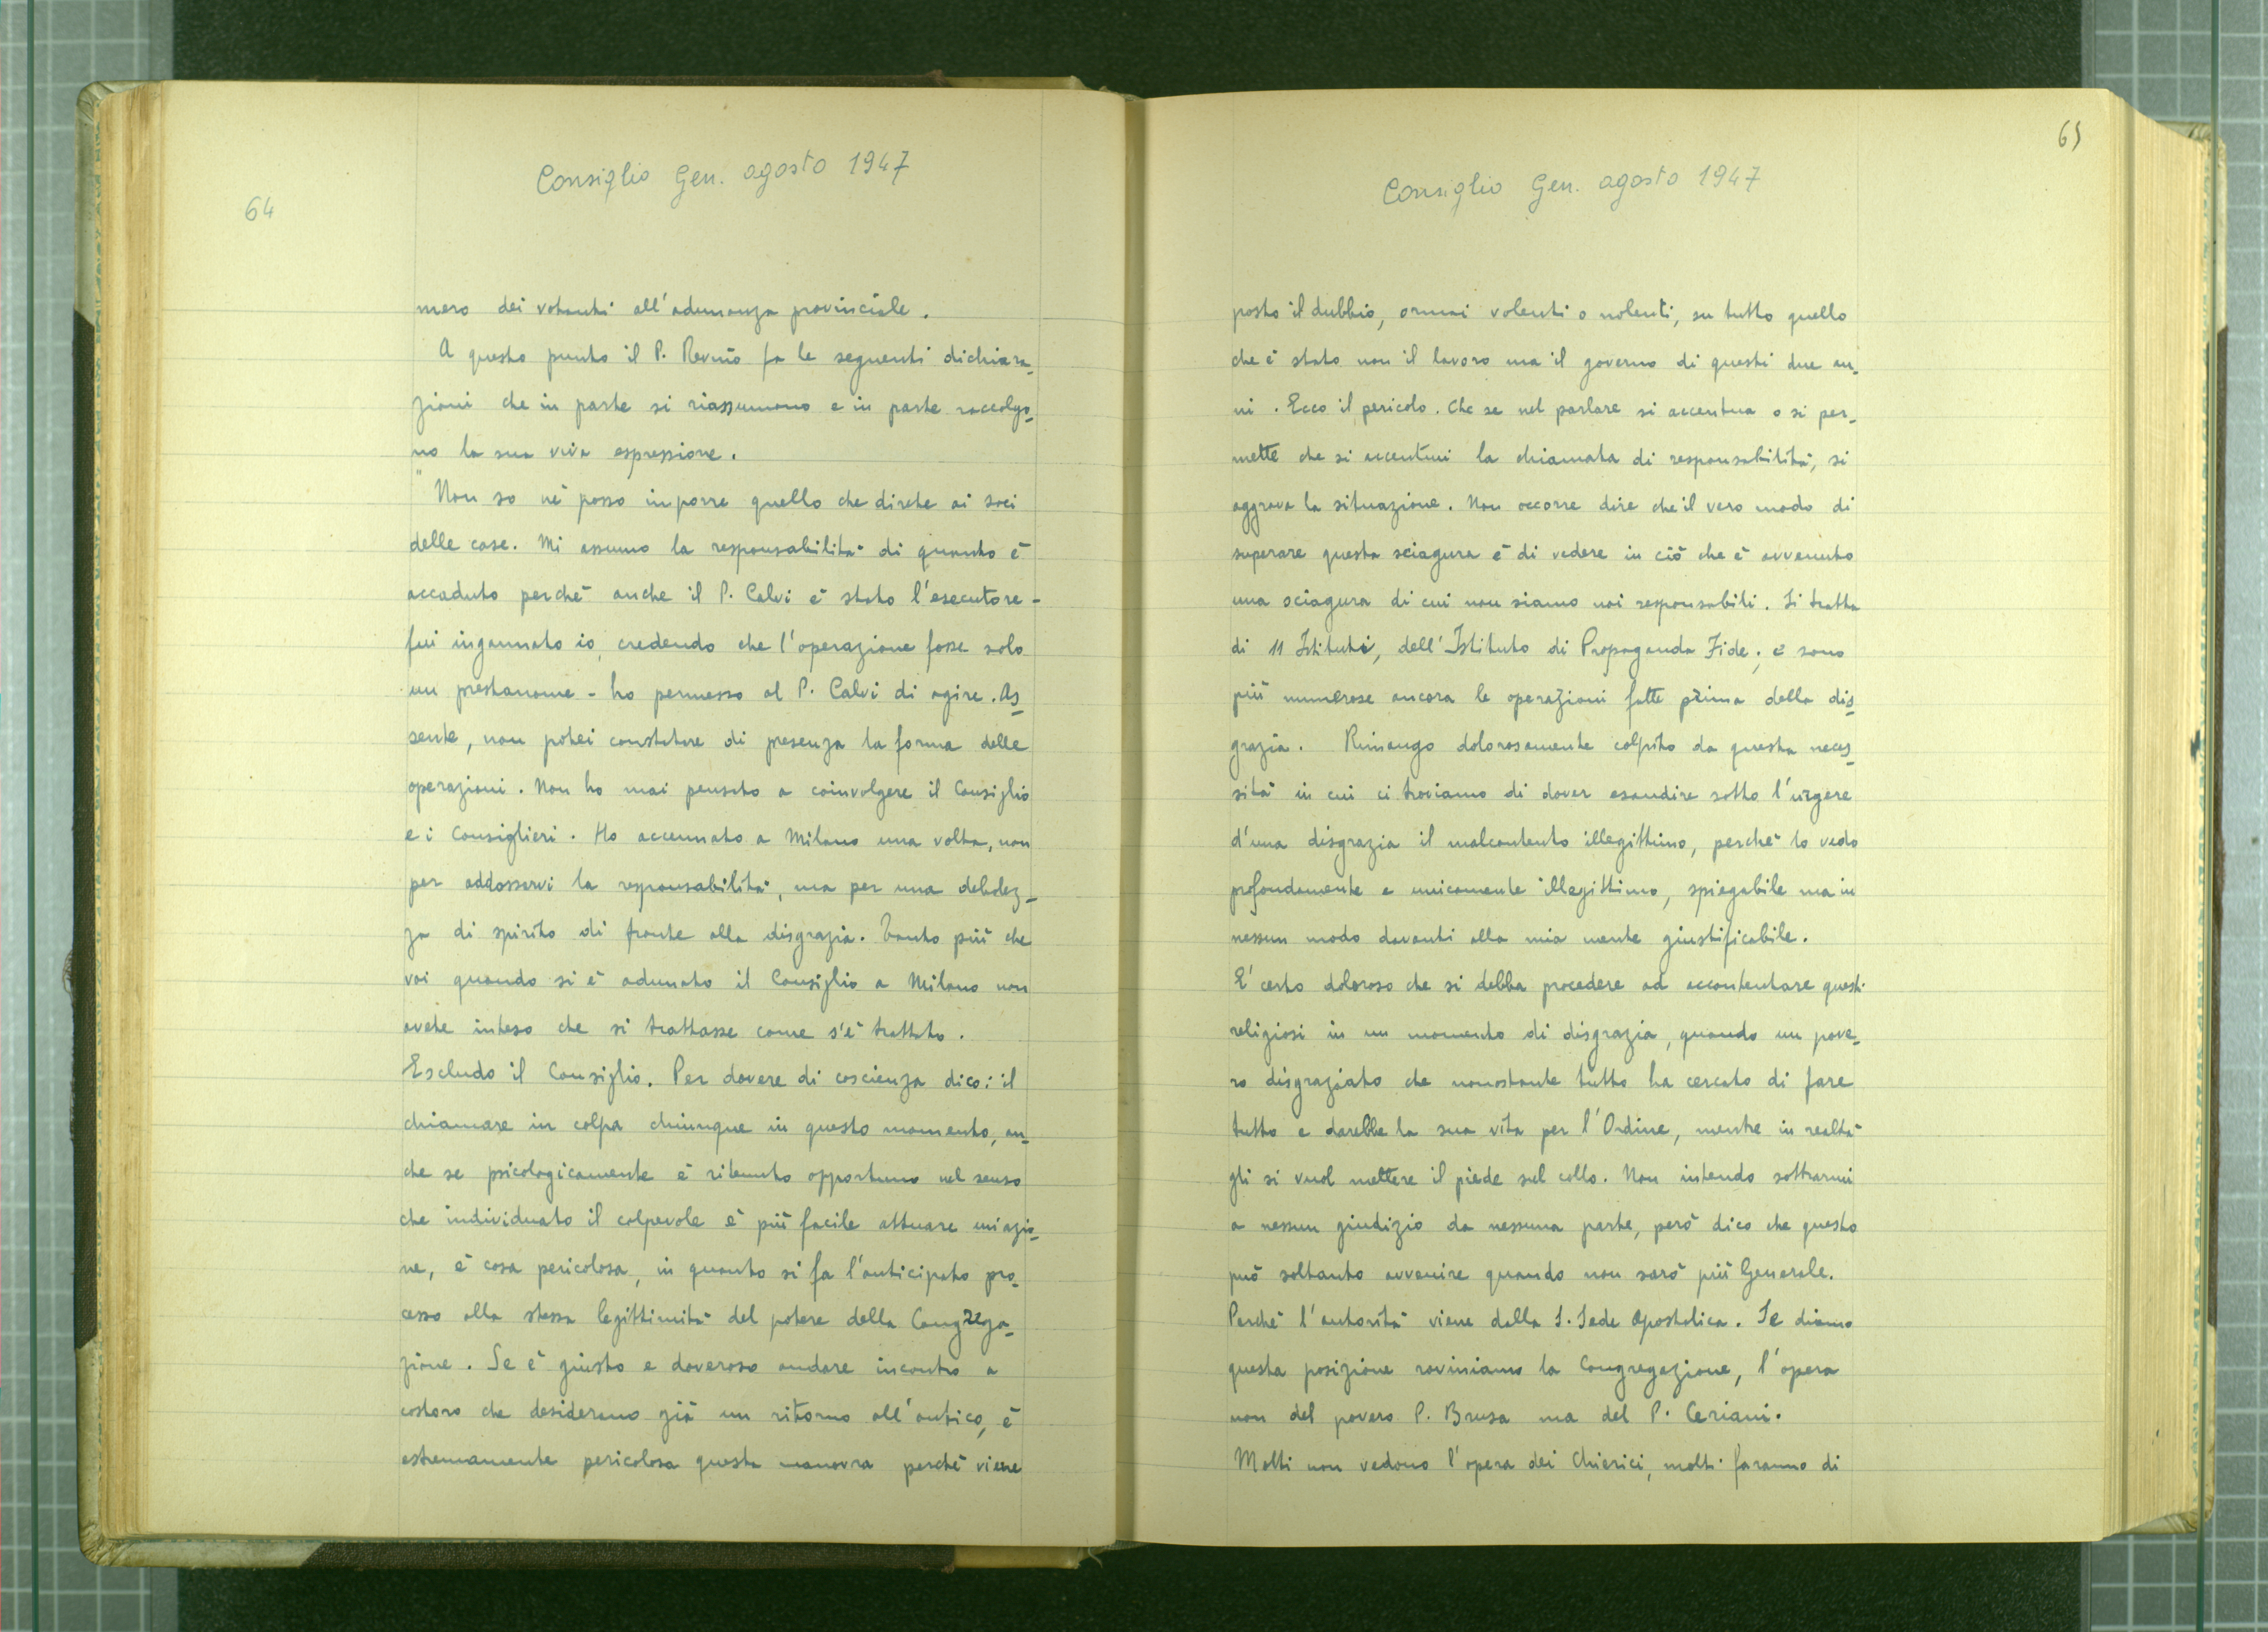 64
Consiglio Gen. agosto 1947
mero dei votanti all'adunanza provinciale.
A questo punto il P. Rev.mo fa le seguenti dichiara-
zioni che in parte si riassumono e in parte raccolgo-
no la sua viva espressione.
"Non so nè posso inporre quello che direte ai soci
delle case. Mi assumo la responsabilità di quanto è
accaduto perchè anche il P. Calvi è stato l'esecutore -
fui ingannato io, credendo che l'operazione fosse solo
un prestanome - ho permesso al P. Calvi di agire. As-
sente, non potei constatare di presenza la forma delle
operazioni. Non ho mai pensato a coinvolgere il Consiglio
e i Consiglieri. Ho accennato a Milano una volta, non
per addossarvi la responsabilità, ma per una debolez-
za di spirito di fronte alla disgrazia. Tanto più che
voi quando si è adunato il Consiglio a Milano non
avete inteso che si trattasse come s'è trattato.
Escludo il Consiglio. Per dovere di coscienza dico: il
chiamare in colpa chiunque in questo momento, an-
che se psicologicamente è ritenuto opportuno nel senso
che individuato il colpevole è più facile attuare un'azio-
ne, è cosa pericolosa, in quanto si fa l'anticipato pro-
cesso alla stessa legittimità del potere della Congrega-
zione. Se è giusto e doveroso andare incontro a
costoro che desiderano già un ritorno all'antico, è
estremamente pericolosa questa manovra perchè viene
65
Consiglio Gen. agosto 1947
posto il dubbio, ormai volenti o nolenti, su tutto quello
che è stato non il lavoro ma il governo di questi due an-
ni. Ecco il pericolo. Che se nel parlare si accentua o si per-
mette che si accentui la chiamata di responsabilità, si
aggrava la situazione. Non occorre dire che il vero modo di
superare questa sciagura è di vedere in ciò che è avvenuto
una sciagura di cui non siamo noi responsabili. Si tratta
di 11 Istituti, dell'Istituto di Propaganda Fide; e sono
più numerose ancora le operazioni fatte prima della dis-
grazia. Rimango dolorosamente colpito da questa neces-
sità in cui ci troviamo di dover esaudire sotto l'urgere
d'una disgrazia il malcontento illegittimo, perchè lo vedo
profondamente e unicamente illegittimo, spiegabile ma in
nessun modo davanti alla mia mente giustificabile.
E' certo doloroso che si debba procedere ad accontentare questi
religiosi in un momento di disgrazia, quando un pove-
ro disgraziato che nonostante tutto ha cercato di fare
tutto e darebbe la sua vita per l'Ordine, mentre in realtà
gli si vuol mettere il piede sul collo. Non intendo sottrarmi
a nessun giudizio da nessuna parte, però dico che questo
può soltanto avvenire quando non sarò più Generale.
Perchè l'autorità viene dalla S. Sede Apostolica. Se diamo
questa posizione roviniamo la Congregazione, l'opera
non del povero P. Brusa ma del P. Ceriani.
Molti non vedono l'opera dei Chierici, molti faranno di